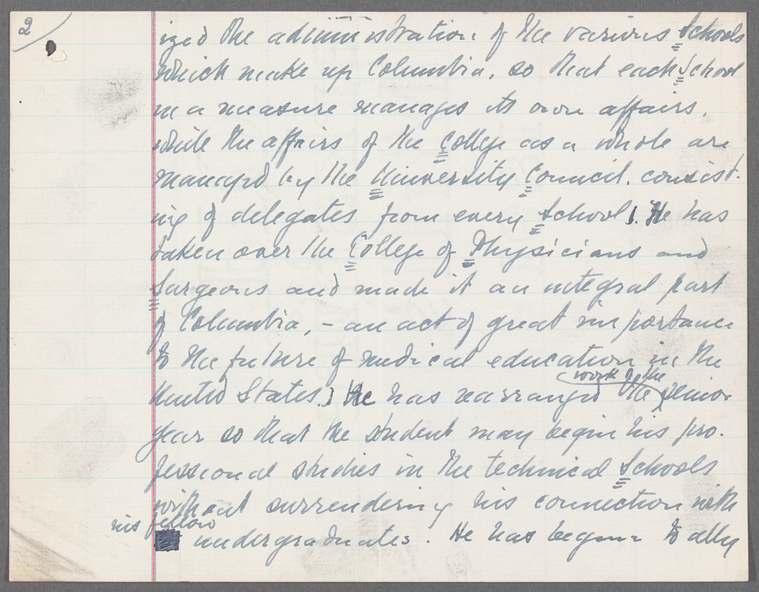 2
ized the administration of the various Schools
which make up Columbia, so that each School
in a measure manages its own affairs,
while the affairs of the College as a whole are
managed by the University Council, consist-
ing of delegates from every School; He has
taken over the College of Physicians and
Surgeons and made it an integral part
of Columbia, - an act of great importance
to the future of medical education in the
work of the
United States; He has rearranged the Senior
year so that the student may begin his pro-
fessional studies in the technical Schools
without surrendering his connection with
his fellow
undergraduates. He has begun to ally